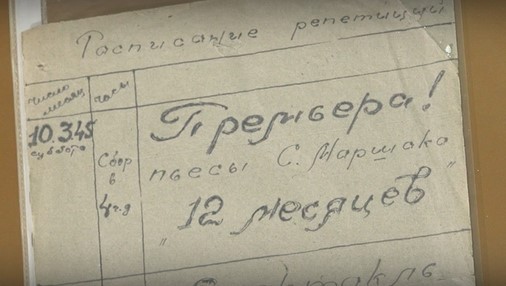 Расписание репетиций
число
месяц
часы
10.3.45
суббота
Сбор
в
4 ч.д
Премьера!
пьесы С. Маршака
"12 месяцев"